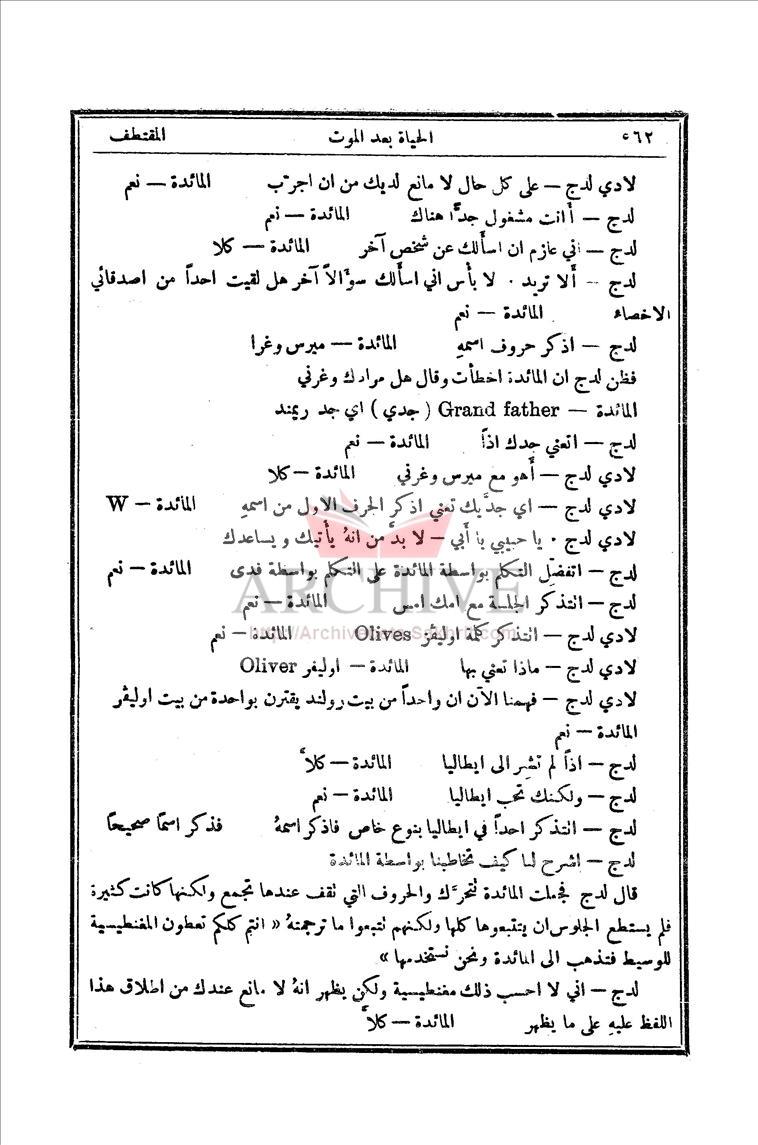 ٥٦٢ الحياة بعد الموت المقتطف
لادي لدج — على كل حال لا مانع لديك من ان اجرّب المائدة — نعم
لدج — أَانت مشغول جدًّا هناك المائدة — نعم
لدج — اني عازم ان اسأَلك عن شخص آخر المائدة — كلا
لدج — أَلا تريد ٠ لا بأس اني اسأَلك سوَّالاً آخر هل لقيت احداً من اصدقائي
الاخصاء المائدة — نعم
لدج — اذكر حروف اسمهِ المائدة — ميرس وغرا
فظن لدج ان المائدة اخطأَت وقال هل مرادك وغرني
المائدة — Grand father ( جدي ) اي جد ريمند
لدج — اتعني جدك اذاً المائدة — نعم
لادي لدج — أَهو مع ميرس وغرني المائدة — كلا
لادي لدج — اي جدَّيك تعني اذكر الحرف الاول من اسمهِ المائدة — W
لادي لدج ٠ يا حبيبي يا أَبي — لا بدَّ من انهُ يأْتيك ويساعدك
لدج — اتفضِّل التكلم بواسطة المائدة على التكلم بواسطة فدى المائدة — نعم
لدج — اتتذكر الجلسة مع امك امس المائدة — نعم
لادي لدج — اتتذكر كلمة اوليڤز Olives المائدة — نعم
لادي لدج — ماذا تعني بها المائدة — اوليفر Oliver
لادي لدج — فهمنا الآن ان واحداً من بيت رولند يقترن بواحدة من بيت اوليڤر
المائدة — نعم
لدج — اذاً لم تشر الى ايطاليا المائدة — كلاَّ
لدج — ولكنك تحب ايطاليا المائدة — نعم
لدج — اتتذكر احداً في ايطاليا بنوع خاص فاذكر اسمهُ فذكر اسمًا صحيحًا
لدج — اشرح لنا كيف تخاطبنا بواسطة المائدة
قال لدج فجعلت المائدة تتحرَّك والحروف التي تقف عندها تجمع ولكنها كانت كثيرة
فلم يستطع الجلوس ان يتتبعوها كلها ولكنهم تتبعوا ما ترجمتهُ « انتم كلكم تعطون المغنطيسية
للوسيط فتذهب الى المائدة ونحن نستخدمها »
لدج — اني لا احسب ذلك مغنطيسية ولكن يظهر انهُ لا مانع عندك من اطلاق هذا
اللفظ عليهِ على ما يظهر المائدة — كلاَّ
ARCHIVE